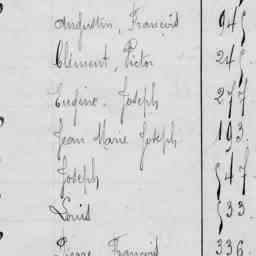 Augustin, François 94
Clément, Victor 24
Eugène. Joseph 277
Jean Marie Joseph 193
Joseph 47
Louis 33
Pierre François 336